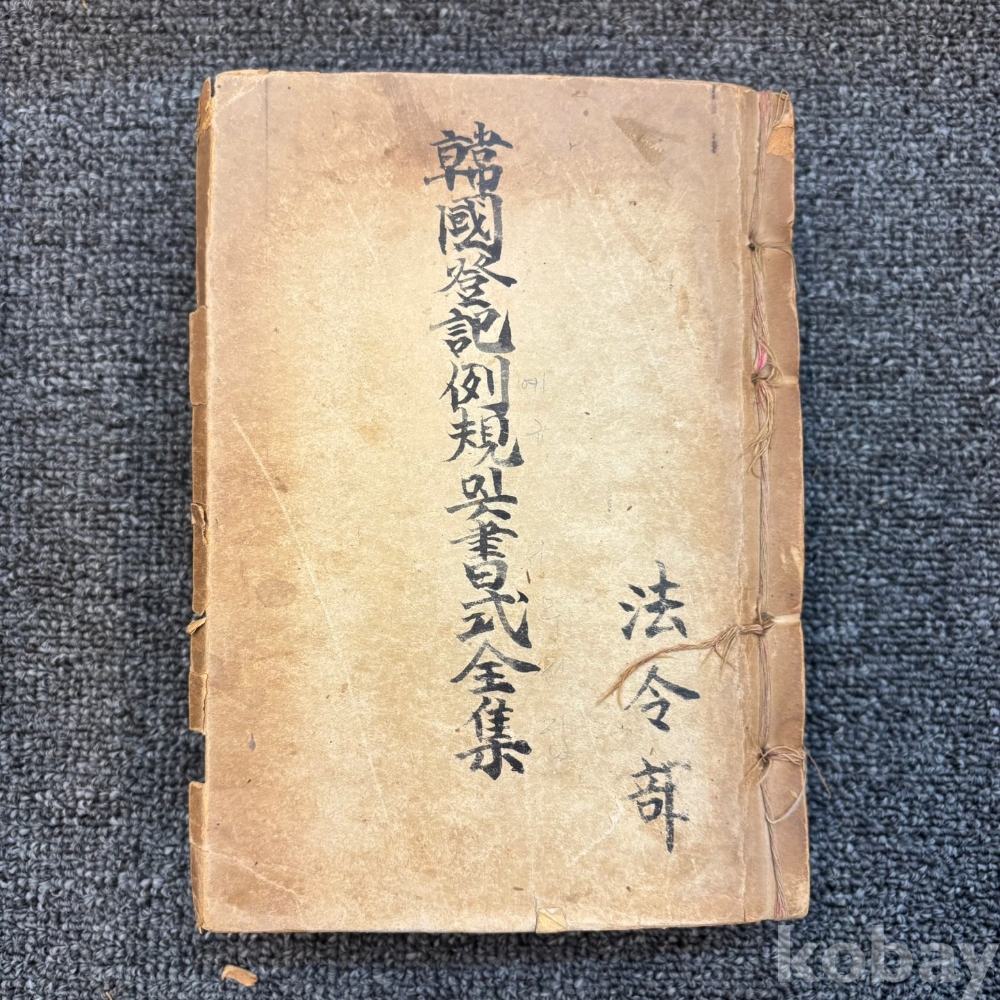 韓國登記例規및書式全集
法令部
kobay